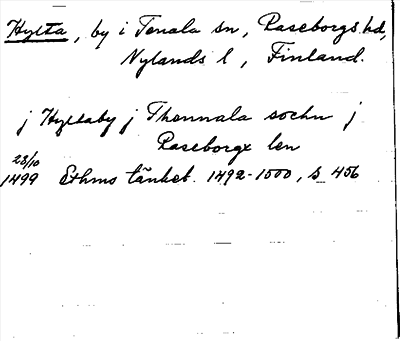 Hylta, by i Tenala sn, Raseborgs hd,
Nylands l, Finland.
j Hyltaby j Thennala sochn j
Raseborgx len
23/10
1499 Ethms tänkeb. 1492-1500, s 456